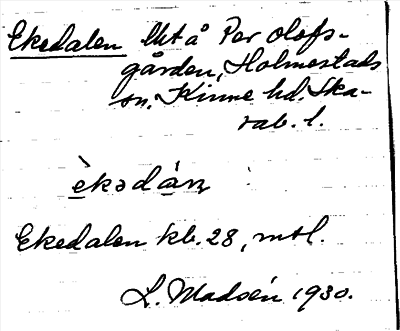 Ekedalen lht å Per olofs-
gården, Holmestads
sn. Kinne hd. Ska-
rab. l.
èkədán
Ekedalen kb. 28, mtl.
L. Madsén 1930.